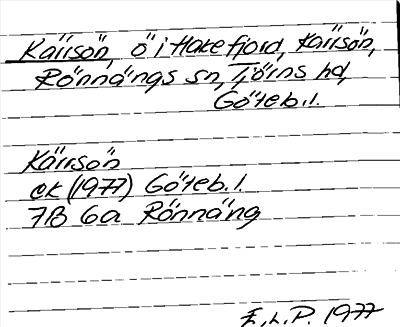 Kärrsön, ö i Hakefjord, Kärrsön,
Rönnängs sn, Tjörns hd,
Göteb. l.
Kärrsön
ek (1977) Göteb. l.
7B 6a Rönnäng
E.L.P. 1977